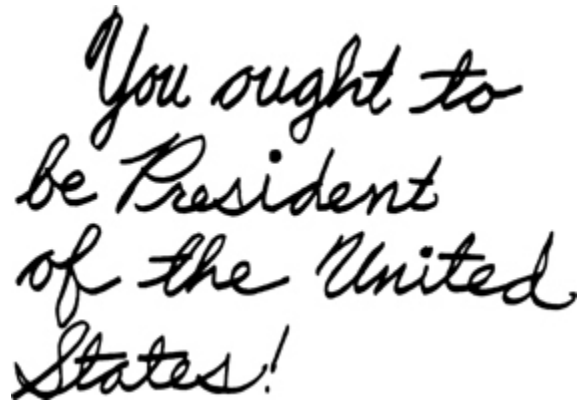 You ought to
be President
of the United
States!